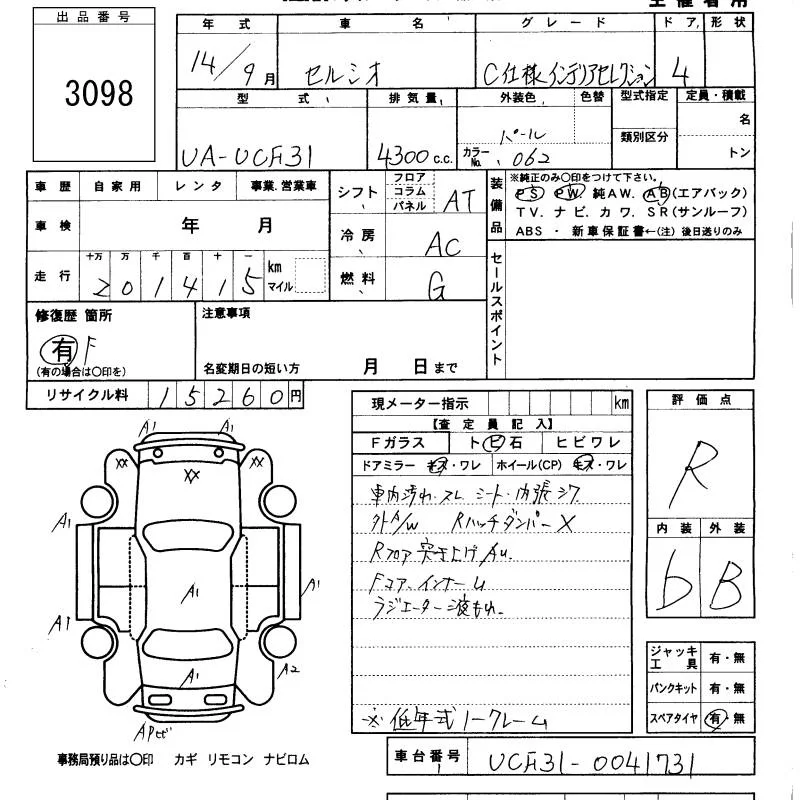 出品番号
3098
年式 車名 グレード ドア 形状
14/9月 セルシオ C仕様インテリアセレクション 4
型式 排気量 外装色 色替 型式指定 定員・積載
UA-UCF31 4300c.c. パール 名
カラーNo. 062 類別区分 トン
車歴 自家用 レンタ 事業.営業車
車検 年 月
走行 十万 万 千 百 十 一 km マイル
2 0 1 4 1 5
シフト フロア コラム パネル AT
冷房 AC
燃料 G
装備品 ※純正のみ〇印をつけて下さい。
PS PW. 純AW. AB(エアバック)
TV. ナビ. カワ. SR(サンルーフ)
ABS ・ 新車保証書←(注) 後日送りのみ
セールスポイント
修復歴 箇所
有 F
(有の場合は〇印を)
注意事項
名変期日の短い方 月 日まで
リサイクル料 1 5 2 6 0 円
現メーター指示 km
【査定員記入】
Fガラス トビ石 ヒビワレ
ドアミラー キズ・ワレ ホイール(CP) キズ・ワレ
車内汚れ.スレ シート・内張シワ
外A/W RハッチダンパーX
Rフロア突き上げAu.
Fコア.インナーム
ラジエーター液もれ.
※低年式ノークレーム
評価点
R
内装 外装
b B
ジャッキ工具 有・無
パンクキット 有・無
スペアタイヤ 有・無
A1 A1
XX XX XX
A1
A1 A1
A1
A1 A2
APセド
事務局預り品は〇印 カギ リモコン ナビロム
車台番号 UCF31-0041731